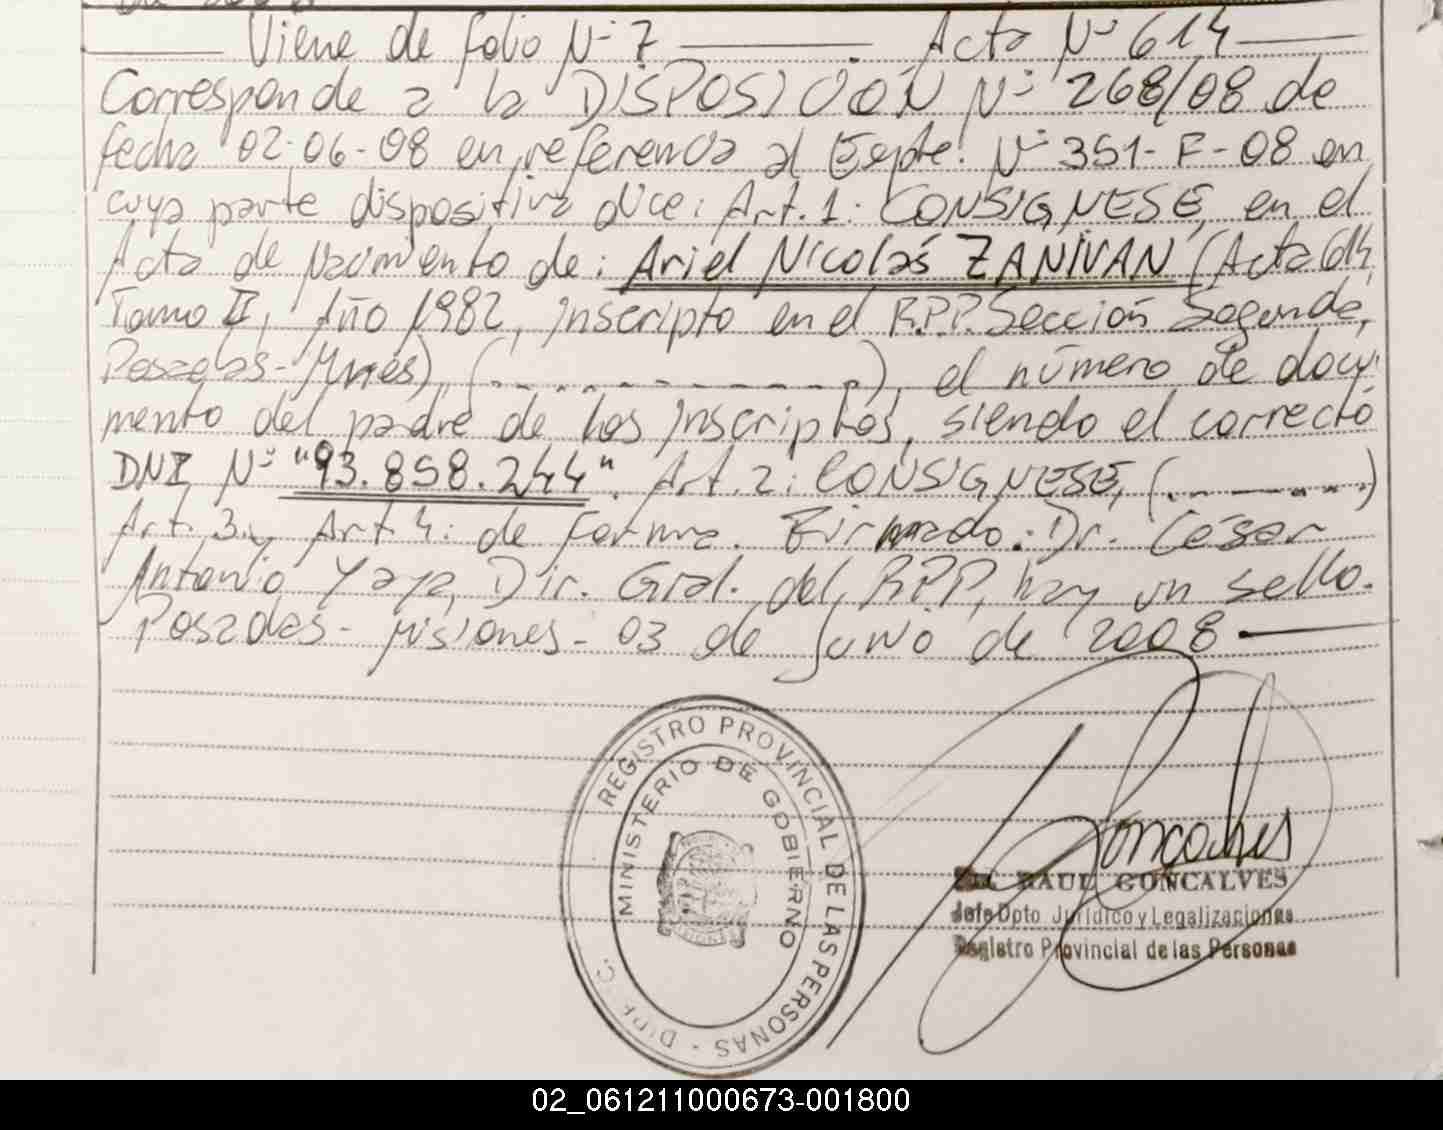 Viene de folio Nº 7 Acta Nº 614
Corresponde a la DISPOSICIÓN Nº 268/08 de
fecha 02-06-08 en referencia al Expte. Nº 351-F-08 en
cuya parte dispositiva dice: Art. 1: CONSIGNESE, en el
Acta de Nacimiento de: Ariel Nicolás ZANIVAN (Acta 614,
Tomo II, Año 1982, inscripto en el R.P.P. Sección Segunda,
Posadas-Mnes), (...........), el número de docu-
mento del padre de los inscriptos, siendo el correcto
DNI Nº "93.858.244". Art. 2: CONSIGNESE, (.........)
Art. 3 y Art 4: de forma. Firmado: Dr. César
Antonio Yaya, Dir. Gral. del R.P.P, hay un sello.
Posadas - Misiones - 03 de Junio de 2008
REGISTRO PROVINCIAL DE LAS PERSONAS
MINISTERIO DE GOBIERNO
Goncalves
RAUL GONCALVES
Jefe Dpto Jurídico y Legalizaciones
Registro Provincial de las Personas
02_061211000673-001800